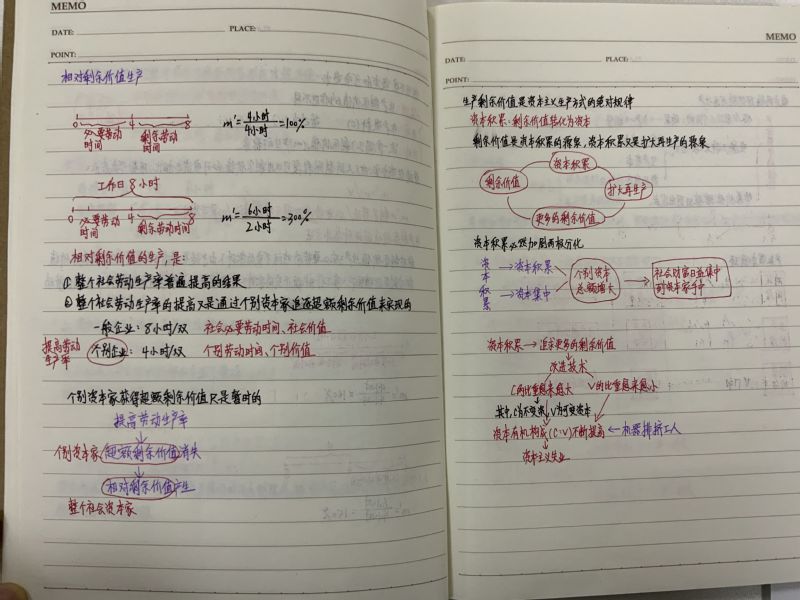 MEMO
DATE: PLACE:
POINT:
相对剩余价值生产
0 4 8
必要劳动时间 剩余劳动时间
m'=4小时/4小时=100%
工作日8小时
0 4 8
必要劳动时间 剩余劳动时间
m'=6小时/2小时=300%
相对剩余价值的生产,是:
① 整个社会劳动生产率普遍提高的结果
② 整个社会劳动生产率的提高又是通过个别资本家追逐超额剩余价值来实现的
一般企业:8小时/双 社会必要劳动时间、社会价值
提高劳动生产率
个别企业:4小时/双 个别劳动时间、个别价值
个别资本家获得超额剩余价值只是暂时的
提高劳动生产率
个别资本家 超额剩余价值消失
相对剩余价值产生
整个社会资本家
MEMO
DATE: PLACE:
POINT:
生产剩余价值是资本主义生产方式的绝对规律
资本积累:剩余价值转化为资本
剩余价值是资本积累的源泉,资本积累又是扩大再生产的源泉
资本积累
剩余价值 扩大再生产
更多的剩余价值
资本积累必然加剧两极分化
资本积累 → 资本积累
→ 资本集中
个别资本总额增大
社会财富日益集中到资本家手中
资本积累 → 追求更多的剩余价值
改进技术
C的比重越来越大 V的比重越来越小
其中,C为不变资本,V为可变资本
资本有机构成(C:V)不断提高 ← 机器排挤工人
资本主义失业